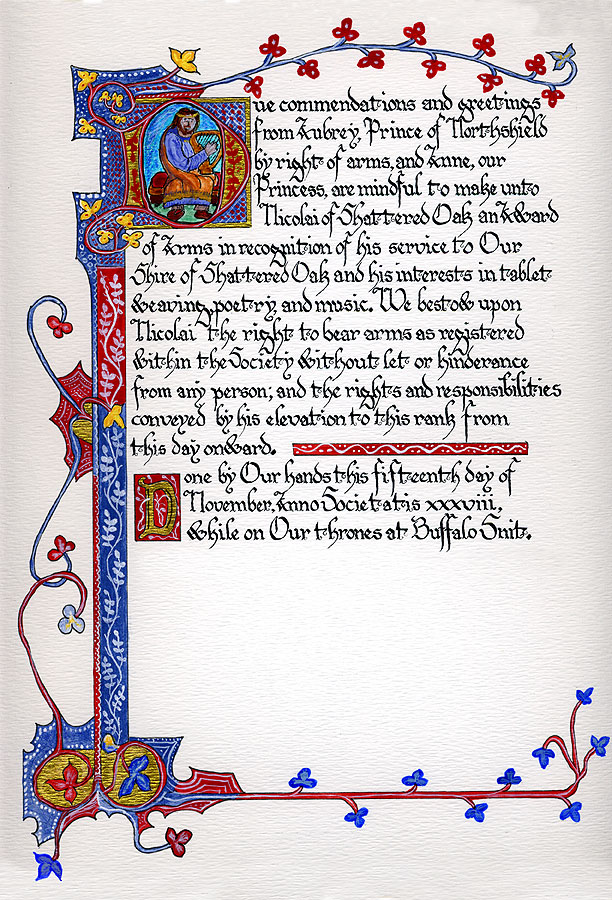 Due commendations and greetings
from Aubrey, Prince of Northshield
by right of arms, and Anne, our
Princess, are mindful to make unto
Nicolai of Shattered Oak an Award
of Arms in recognition of his service to Our
Shire of Shattered Oak and his interests in tablet
weaving, poetry, and music. We bestow upon
Nicolai the right to bear arms as registered
within the Society without let or hinderance
from any person; and the rights and responsibilities
conveyed by his elevation to this rank from
this day onward.
Done by Our hands this fifteenth day of
November, Anno Societatis xxxviii,
while on Our thrones at Buffalo Snit.